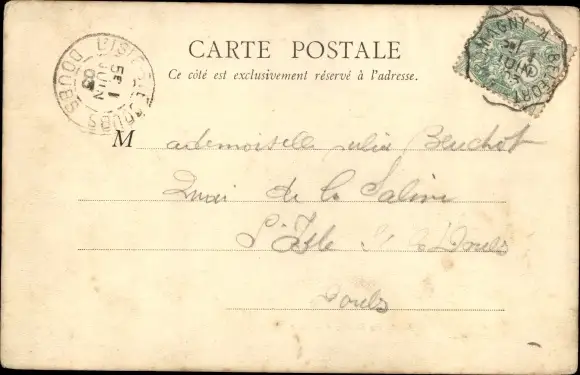 CARTE POSTALE
Ce côté est exclusivement réservé à l'adresse.
L'ISLE-S-LE-DOUBS
1
JUIN
03
DOUBS
MAGNY A BELFORT
JUIN
03
Mademoiselle Julia Beuchot
Quai de la Saline
L'Isle S le Doubs
Doubs